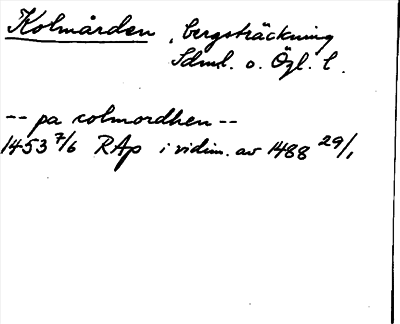 Kolmården, bergsträckning
Sdml. o. Ögl. l.
-- pa colmordhen --
1453 7/6 RAp i vidim. av 1488 29/1